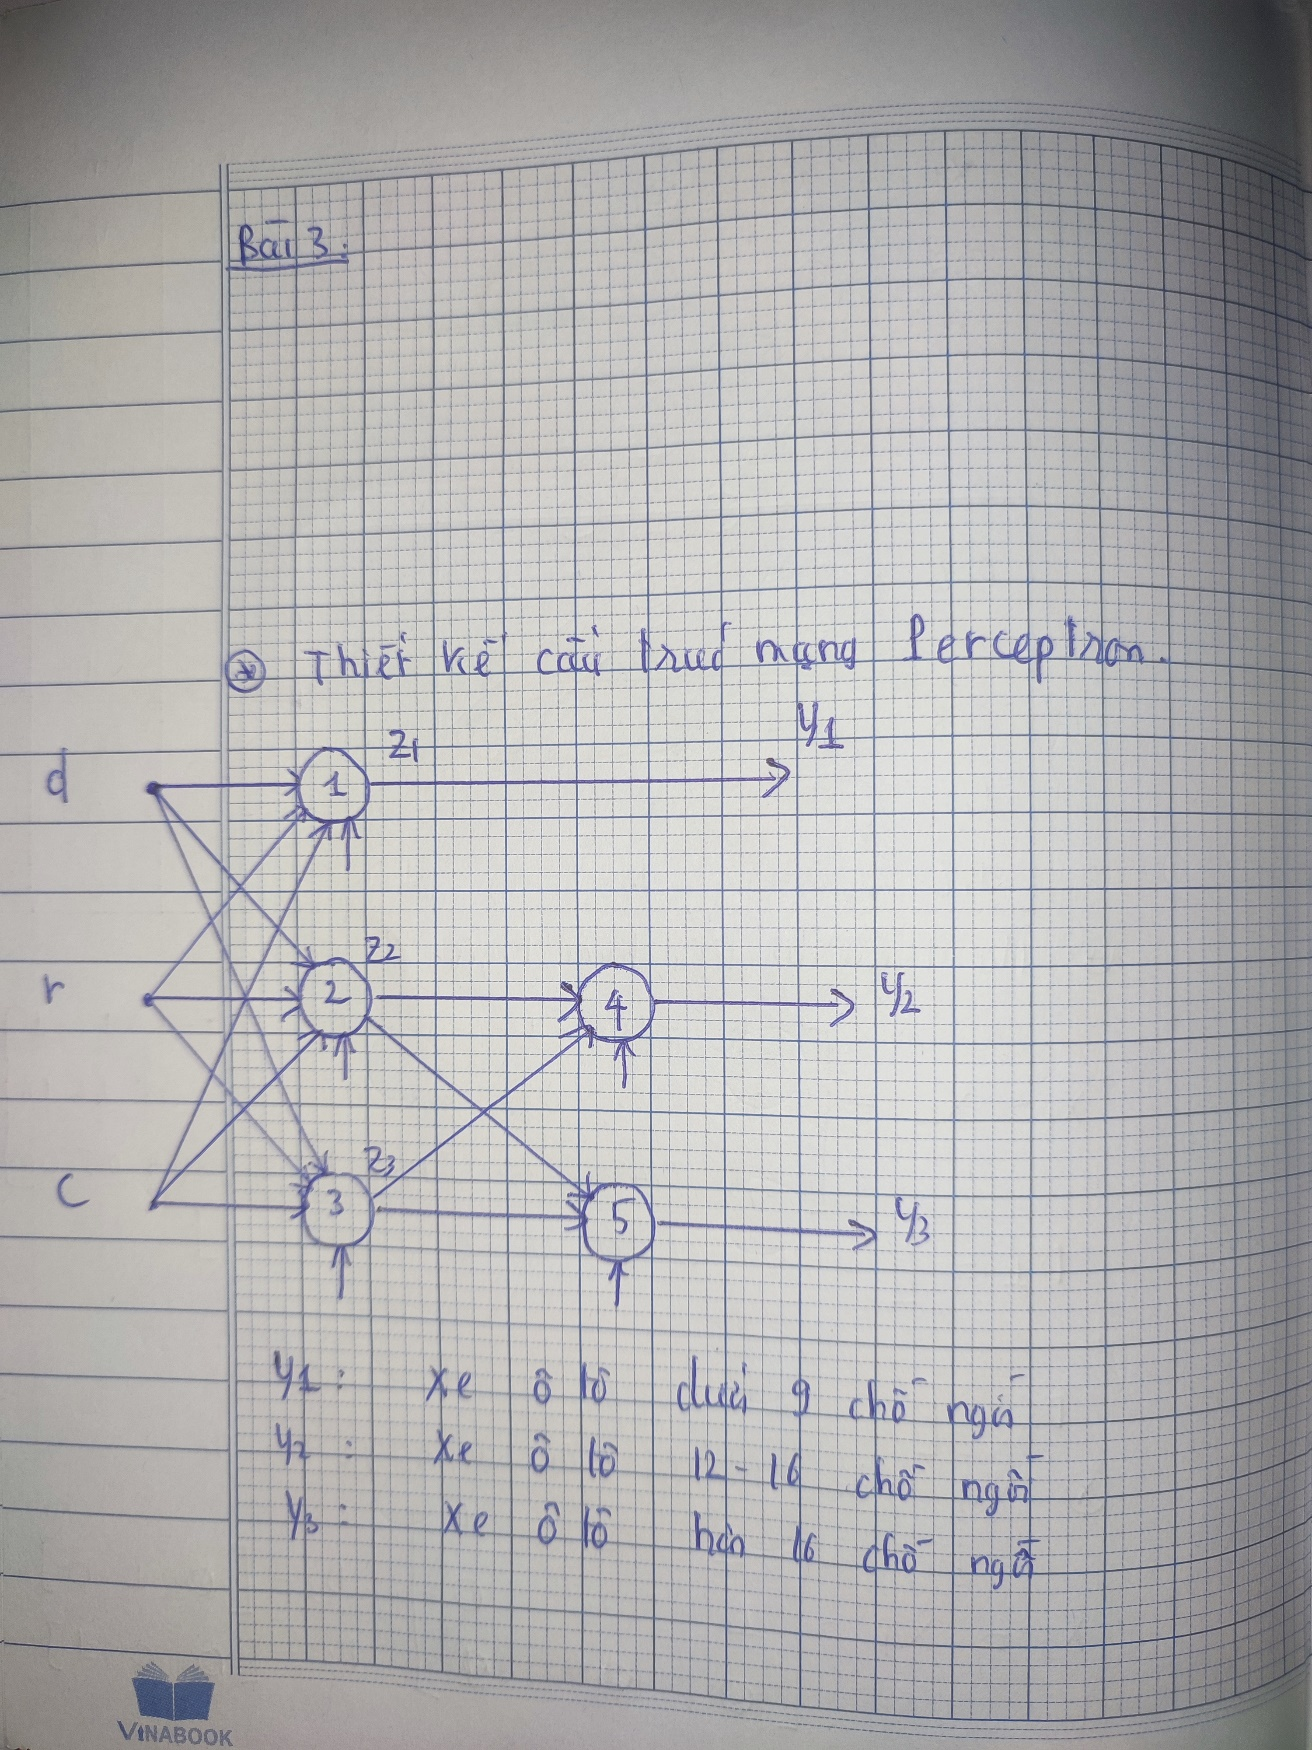 Bài 3:
Thiết kế cấu trúc mạng Perceptron.
y1
z1
d
1
z2
r
2
4
y2
z3
c
3
5
y3
y1: xe ô tô dưới 9 chỗ ngồi
y2: xe ô tô 12-16 chỗ ngồi
y3: xe ô tô hơn 16 chỗ ngồi
VINABOOK